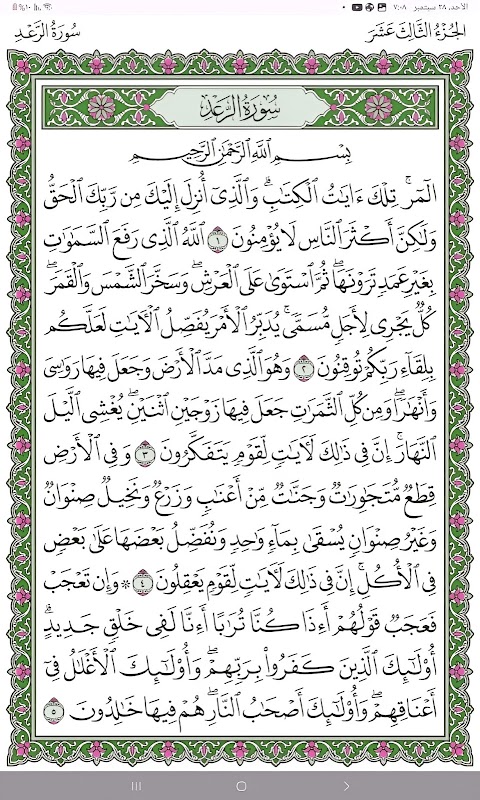 الأحد، ٢٨ سبتمبر ٧:٠٨
الجُزْءُ الثَّالِثَ عَشَرَ
سُورَةُ الرَّعْدِ
سُورَةُ الرَّعْدِ
بِسْمِ ٱللَّهِ ٱلرَّحْمَٰنِ ٱلرَّحِيمِ
الٓمٓرۚ تِلْكَ ءَايَٰتُ ٱلْكِتَٰبِۗ وَٱلَّذِىٓ أُنزِلَ إِلَيْكَ مِن رَّبِّكَ ٱلْحَقُّ
وَلَٰكِنَّ أَكْثَرَ ٱلنَّاسِ لَا يُؤْمِنُونَ ١ ٱللَّهُ ٱلَّذِى رَفَعَ ٱلسَّمَٰوَٰتِ
بِغَيْرِ عَمَدٍ تَرَوْنَهَاۖ ثُمَّ ٱسْتَوَىٰ عَلَى ٱلْعَرْشِۖ وَسَخَّرَ ٱلشَّمْسَ وَٱلْقَمَرَۖ
كُلٌّ يَجْرِى لِأَجَلٍ مُّسَمًّىۚ يُدَبِّرُ ٱلْأَمْرَ يُفَصِّلُ ٱلْءَايَٰتِ لَعَلَّكُم
بِلِقَآءِ رَبِّكُمْ تُوقِنُونَ ٢ وَهُوَ ٱلَّذِى مَدَّ ٱلْأَرْضَ وَجَعَلَ فِيهَا رَوَٰسِىَ
وَأَنْهَٰرًاۖ وَمِن كُلِّ ٱلثَّمَرَٰتِ جَعَلَ فِيهَا زَوْجَيْنِ ٱثْنَيْنِۖ يُغْشِى ٱلَّيْلَ
ٱلنَّهَارَۚ إِنَّ فِى ذَٰلِكَ لَءَايَٰتٍ لِّقَوْمٍ يَتَفَكَّرُونَ ٣ وَفِى ٱلْأَرْضِ
قِطَعٌ مُّتَجَٰوِرَٰتٌ وَجَنَّٰتٌ مِّنْ أَعْنَٰبٍ وَزَرْعٌ وَنَخِيلٌ صِنْوَانٌ
وَغَيْرُ صِنْوَانٍ يُسْقَىٰ بِمَآءٍ وَٰحِدٍ وَنُفَضِّلُ بَعْضَهَا عَلَىٰ بَعْضٍ
فِى ٱلْأُكُلِۚ إِنَّ فِى ذَٰلِكَ لَءَايَٰتٍ لِّقَوْمٍ يَعْقِلُونَ ٤ ۞ وَإِن تَعْجَبْ
فَعَجَبٌ قَوْلُهُمْ أَءِذَا كُنَّا تُرَٰبًا أَءِنَّا لَفِى خَلْقٍ جَدِيدٍۗ
أُو۟لَٰٓئِكَ ٱلَّذِينَ كَفَرُوا۟ بِرَبِّهِمْۖ وَأُو۟لَٰٓئِكَ ٱلْأَغْلَٰلُ فِىٓ
أَعْنَاقِهِمْۖ وَأُو۟لَٰٓئِكَ أَصْحَٰبُ ٱلنَّارِۖ هُمْ فِيهَا خَٰلِدُونَ ٥